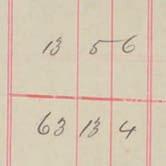 13 5 6
63 13 4